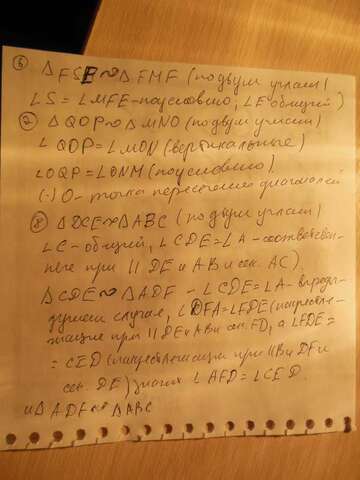 ⑥ △FSE ∾ △FMF (по двум углам)
∠S = ∠MFE - по условию, ∠F общий)
② △QOP ∾ △MNO (по двум углам)
∠QOP = ∠MON (вертикальные)
∠OQP = ∠ONM (по условию).
(·) O - точка пересечения диагоналей
⑧ △DCE ∾ △ABC (по двум углам)
∠C - общий, ∠CDE = ∠A - соответствен-
ные при || DE и AB и сек. AC).
△CDE ∾ △ADF - ∠CDE = ∠A - в преды-
дущем случае, ∠DFA = ∠FDE (накрест ле-
жащие при || DE и AB и сек. FD, а ∠FDE =
= CED (накрестлежащие при || DF и
сек. DE) значит ∠AFD = ∠CED.
и △ADF ∾ △ABC